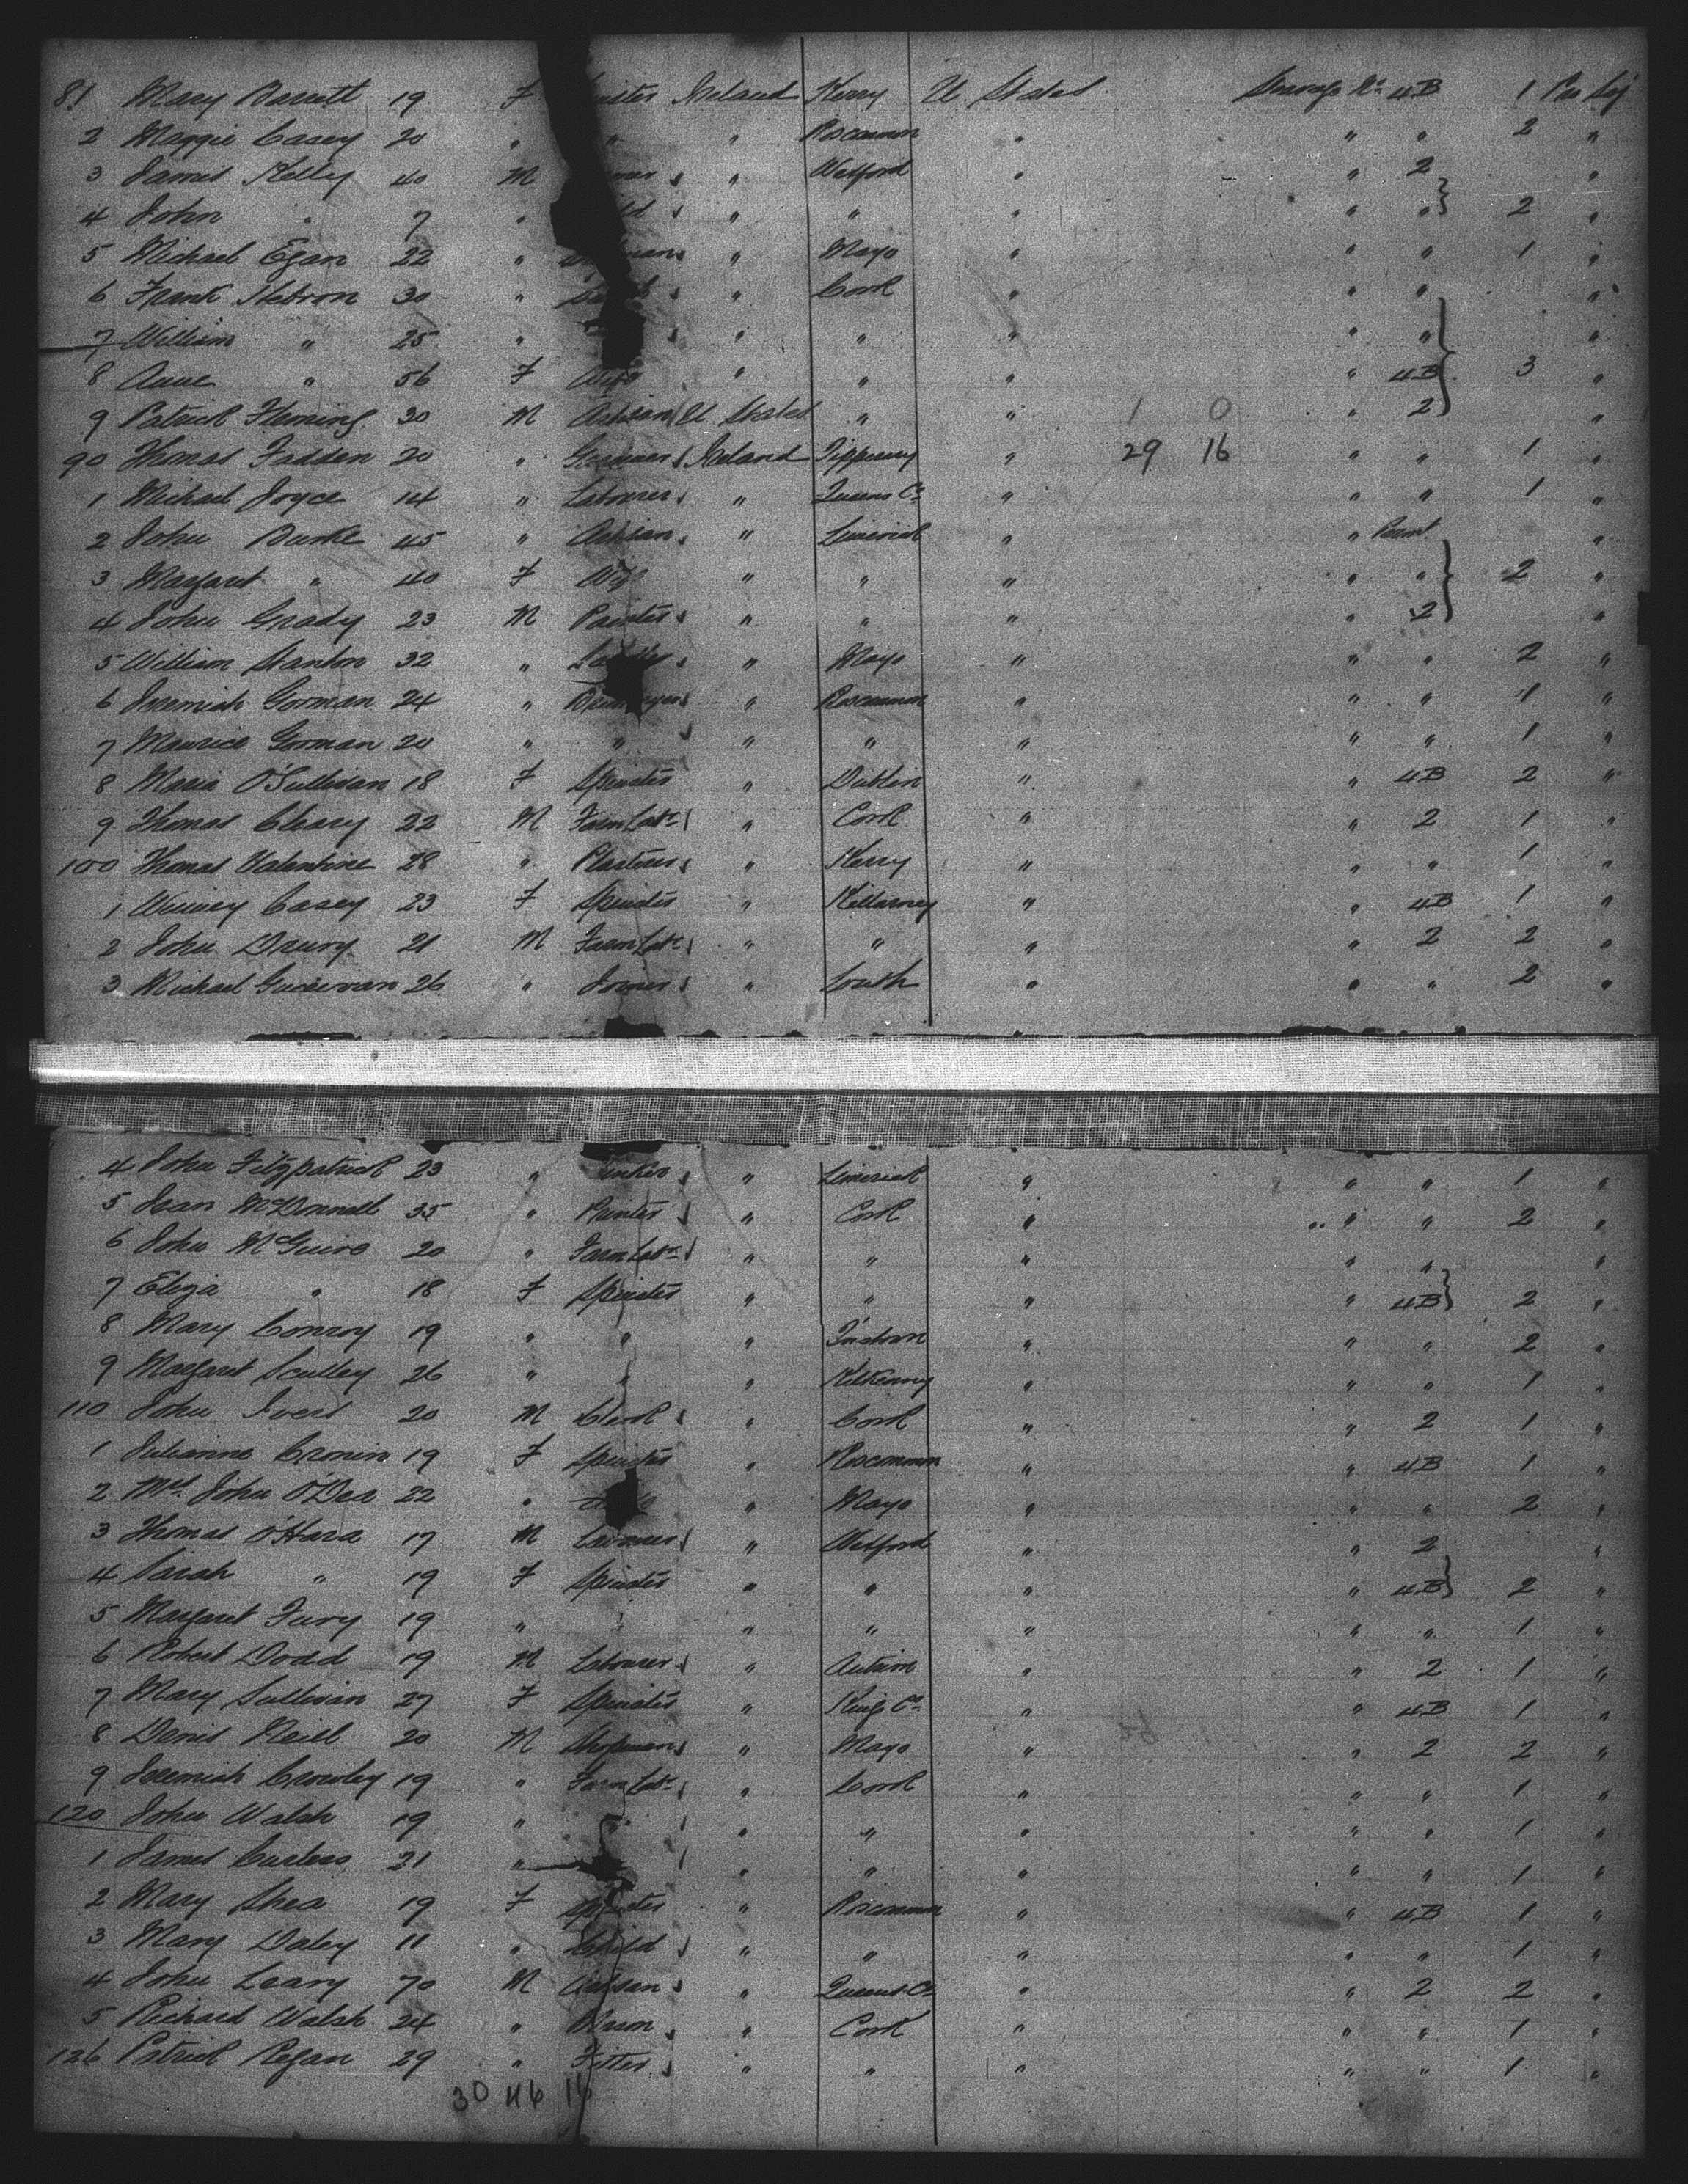 81 Mary Barrett 19 F Ireland Kerry U. States Steerage 4B 1
2 Maggie Casey 20 " " " Roscommon " " " 2 "
3 James Kelly 40 M " Wexford " " 2 "
4 John " 7 " " " " " " 2 "
5 Michael Egan 22 " " Mayo " " " 1 "
6 Frank Hebron 30 " " Cork " " " "
7 William " 25 " " " " " " "
8 Anne " 56 F Wife " " " " 4B 3 "
9 Patrick Fleming 30 M Artisan U States " " 1 0 " 2 "
90 Thomas Fadden 20 " Ireland Tipperary " 29 16 " " 1 "
1 Michael Joyce 14 " Labourer " Queens Co " " " 1 "
2 John Burke 45 " Artisan " Limerick " " "
3 Margaret " 40 F Wife " " " " " 2 "
4 John Grady 23 M Painter " " " " 2 "
5 William Stanton 32 " " Mayo " " " 2 "
6 Jeremiah Gorman 24 " " Roscommon " " " 1 "
7 Maurice Gorman 20 " " " " " " " 1 "
8 Maria O'Sullivan 18 F Spinster " Dublin " " 4B 2 "
9 Thomas Cleary 22 M Farm Labr " Cork " " 2 1 "
100 Thomas Valentine 28 " Plasterer " Kerry " " " 1 "
1 Winney Casey 23 F Spinster " Killarney " " 4B 1 "
2 John Drury 21 M Farm Labr " " " " 2 2 "
3 Michael 26 " Joiner " Louth " " " 2 "
4 John Fitzpatrick 23 " " Limerick " " " 1 "
5 McDonnell 35 " Printer " Cork " " " 2 "
6 John McGuire 20 " Farm Labr " " " " " "
7 Eliza " 18 F Spinster " " " " 4B 2 "
8 Mary Conroy 19 " " " " " " 2 "
9 Margaret Sculley 26 " " " Kilkenny " " " 1 "
110 John Ivers 20 M Clerk " Cork " " 2 1 "
1 Julianne Cronin 19 F Spinster " Roscommon " " 4B 1 "
2 Mrs John O'Dea 22 " " Mayo " " " 2 "
3 Thomas O'Hara 17 M " Wexford " " 2 "
4 Sarah " 19 F Spinster " " " " 4B 2 "
5 Margaret Fury 19 " " " " " " 1 "
6 Robert Dodd 19 M Labourer " Antrim " " 2 1 "
7 Mary Sullivan 27 F Spinster " Kings Co " " 4B 1 "
8 Denis Neill 20 M Shopman " Mayo " " 2 2 "
9 Jeremiah Crowley 19 " Farm Labr " Cork " " " 1 "
120 John Walsh 19 " " " " " " " 1 "
1 James 21 " " " " " " 1 "
2 Mary Shea 19 F Spinster " Roscommon " " 4B 1 "
3 Mary Daley 11 " Child " " " " " 1 "
4 John Leary 70 M Artisan " Queens Co " " 2 2 "
5 Richard Walsh 24 " Mason " Cork " " " 1 "
126 Patrick Regan 29 " Fitter " " " " " 1 "
30 46 16